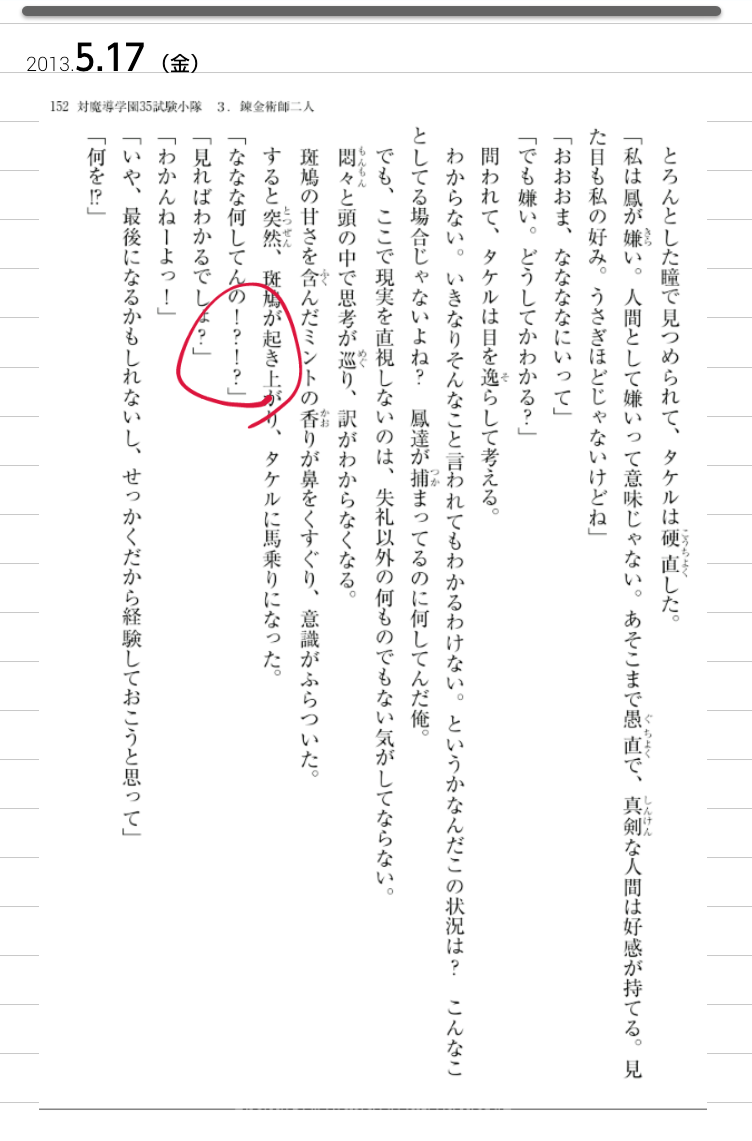 2013.5.17（金）
152 対魔導学園35試験小隊　3．錬金術師二人
とろんとした瞳で見つめられて、タケルは硬直した。
「私は鳳が嫌い。人間として嫌いって意味じゃない。あそこまで愚直で、真剣な人間は好感が持てる。見
た目も私の好み。うさぎほどじゃないけどね」
「おおおま、ななななにいって」
「でも嫌い。どうしてかわかる？」
問われて、タケルは目を逸らして考える。
わからない。いきなりそんなこと言われてもわかるわけない。というかなんだこの状況は？　こんなこ
としてる場合じゃないよね？　鳳達が捕まってるのに何してんだ俺。
でも、ここで現実を直視しないのは、失礼以外の何ものでもない気がしてならない。
悶々と頭の中で思考が巡り、訳がわからなくなる。
斑鳩の甘さを含んだミントの香りが鼻をくすぐり、意識がふらついた。
すると突然、斑鳩が起き上がり、タケルに馬乗りになった。
「ななな何してんの！？！？」
「見ればわかるでしょ？」
「わかんねーよっ！」
「いや、最後になるかもしれないし、せっかくだから経験しておこうと思って」
「何を!?」